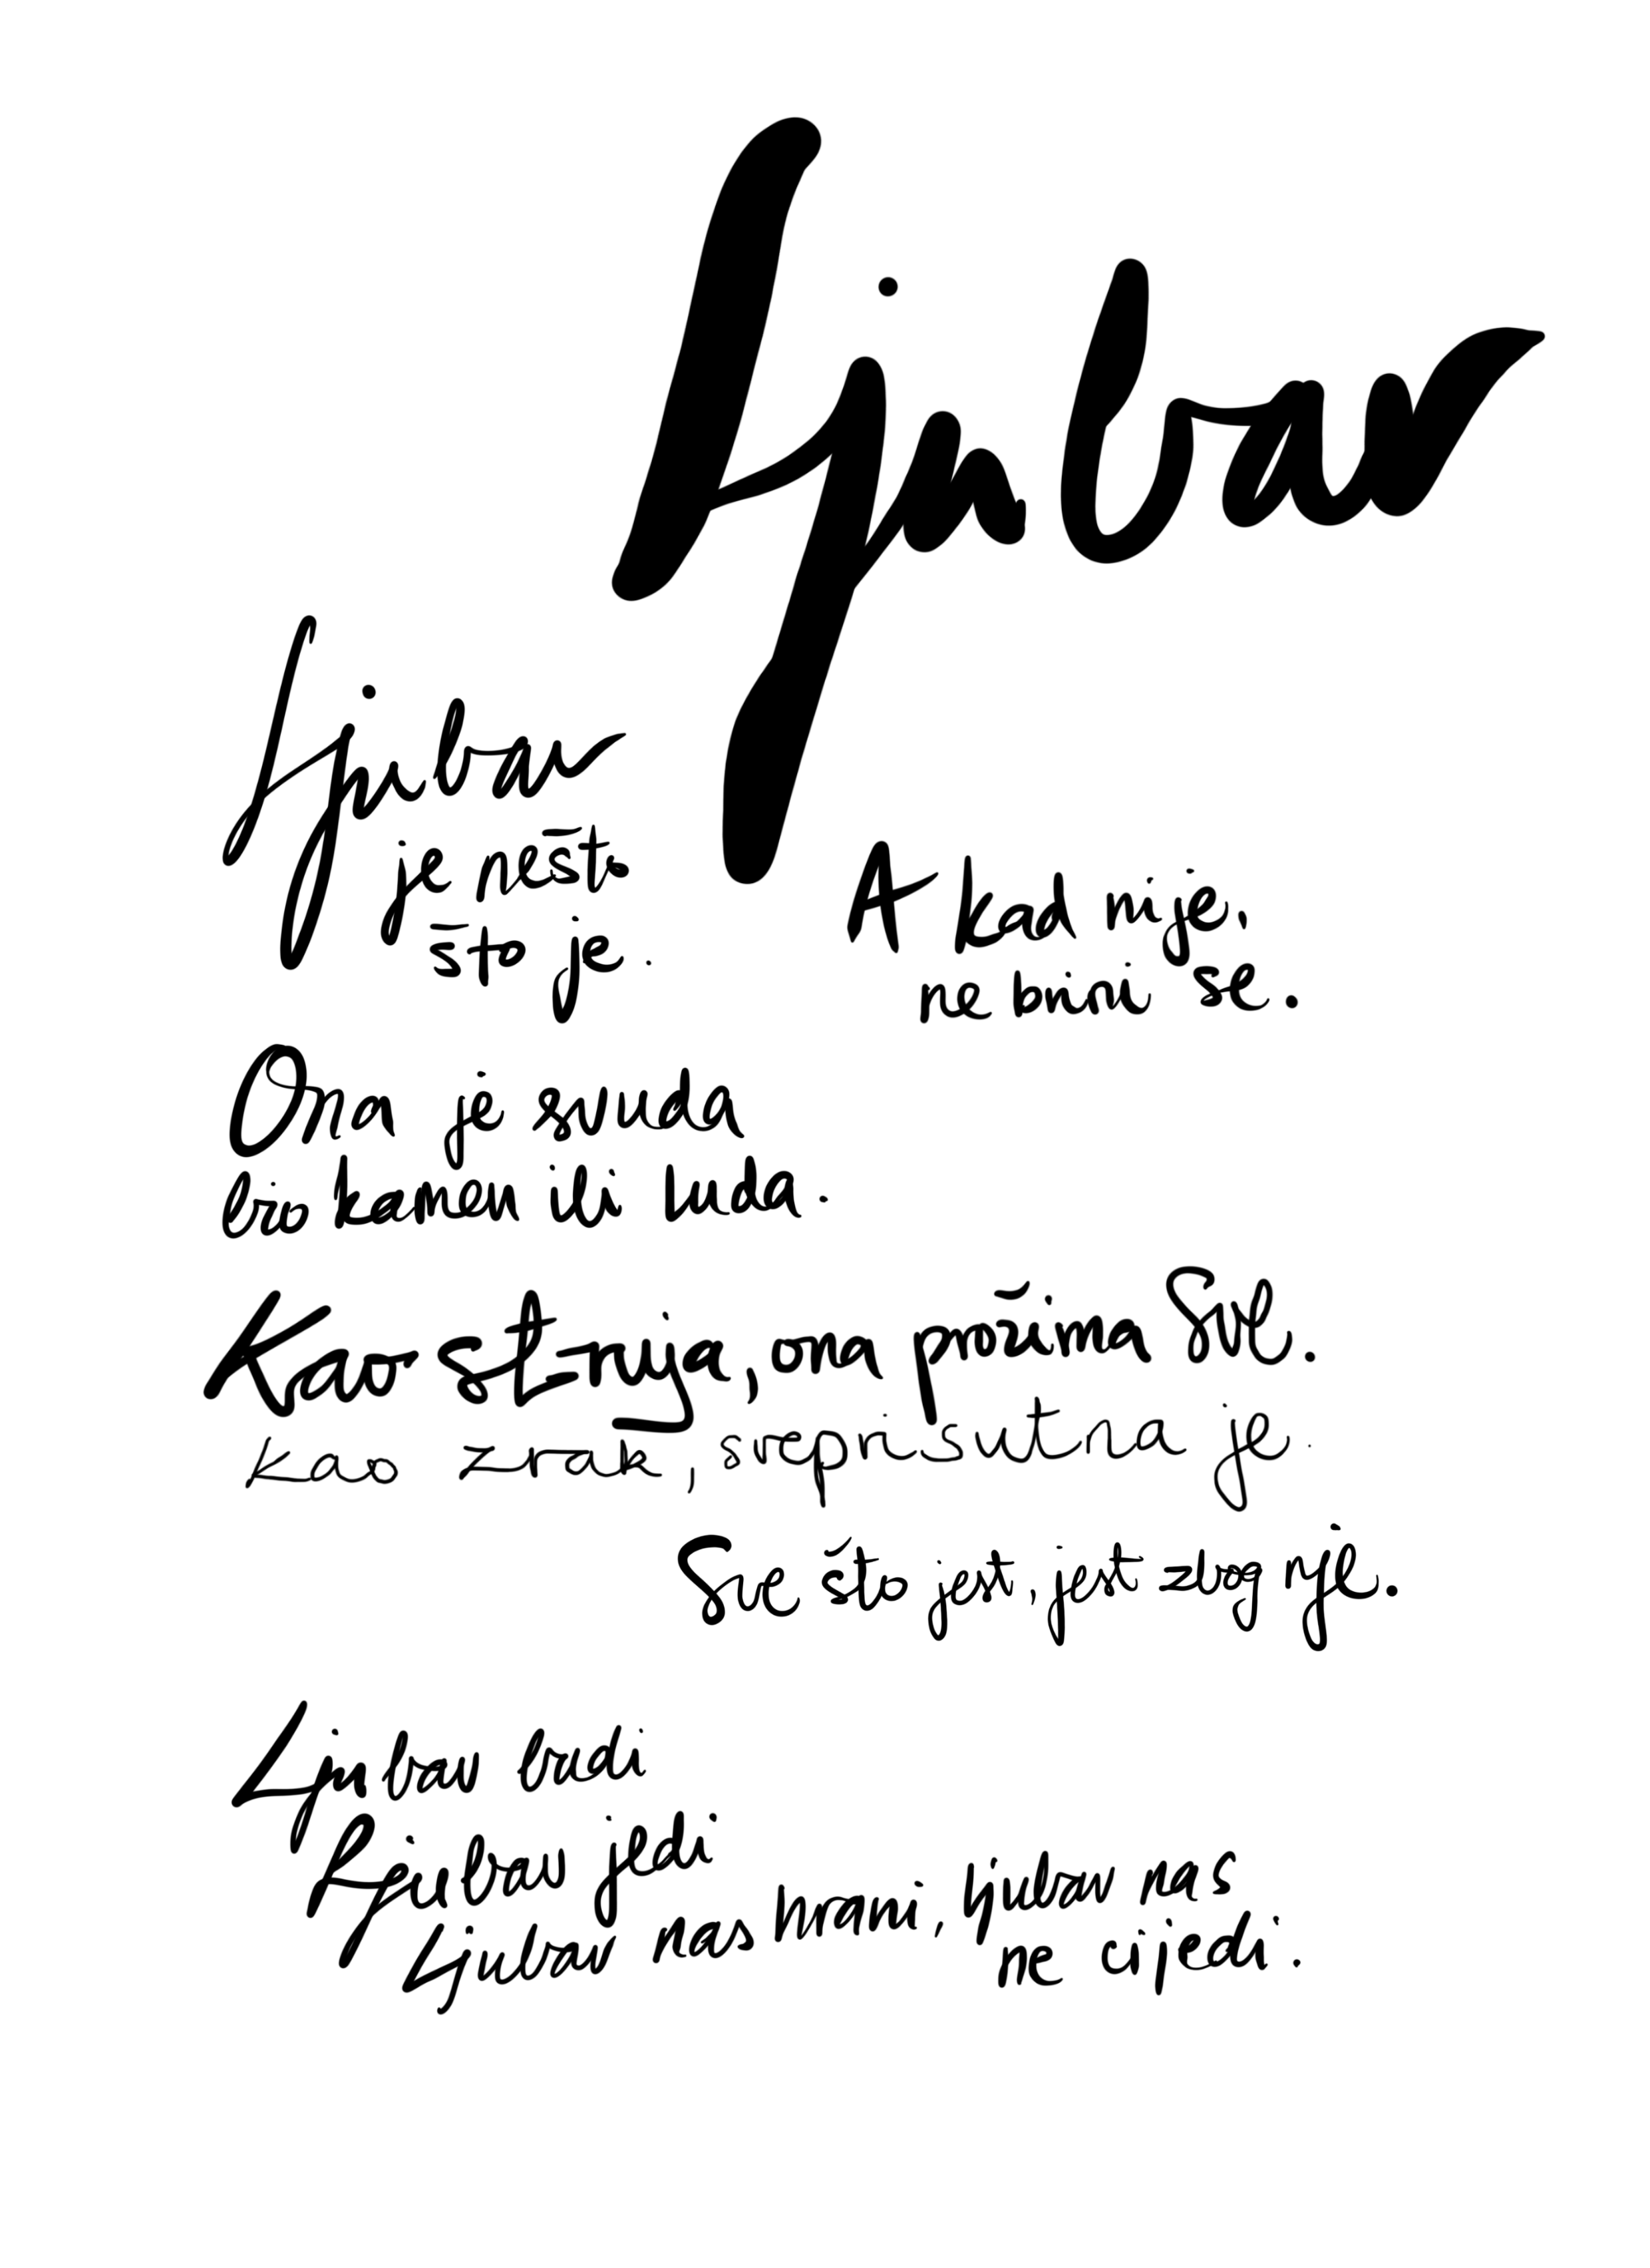 Ljubav
Ljubav
je nešto
što je.
A kad nije,
ne brini se.
Ona je svuda
bio kamen ili luda.
Kao stihija, ona požima sve.
kao zrak, sveprisutna je.
Sve što jest, jest zbog nje.
Ljubav budi
Ljubav jedi
Ljubav nas hrani, ljubav nas
ne cijedi.